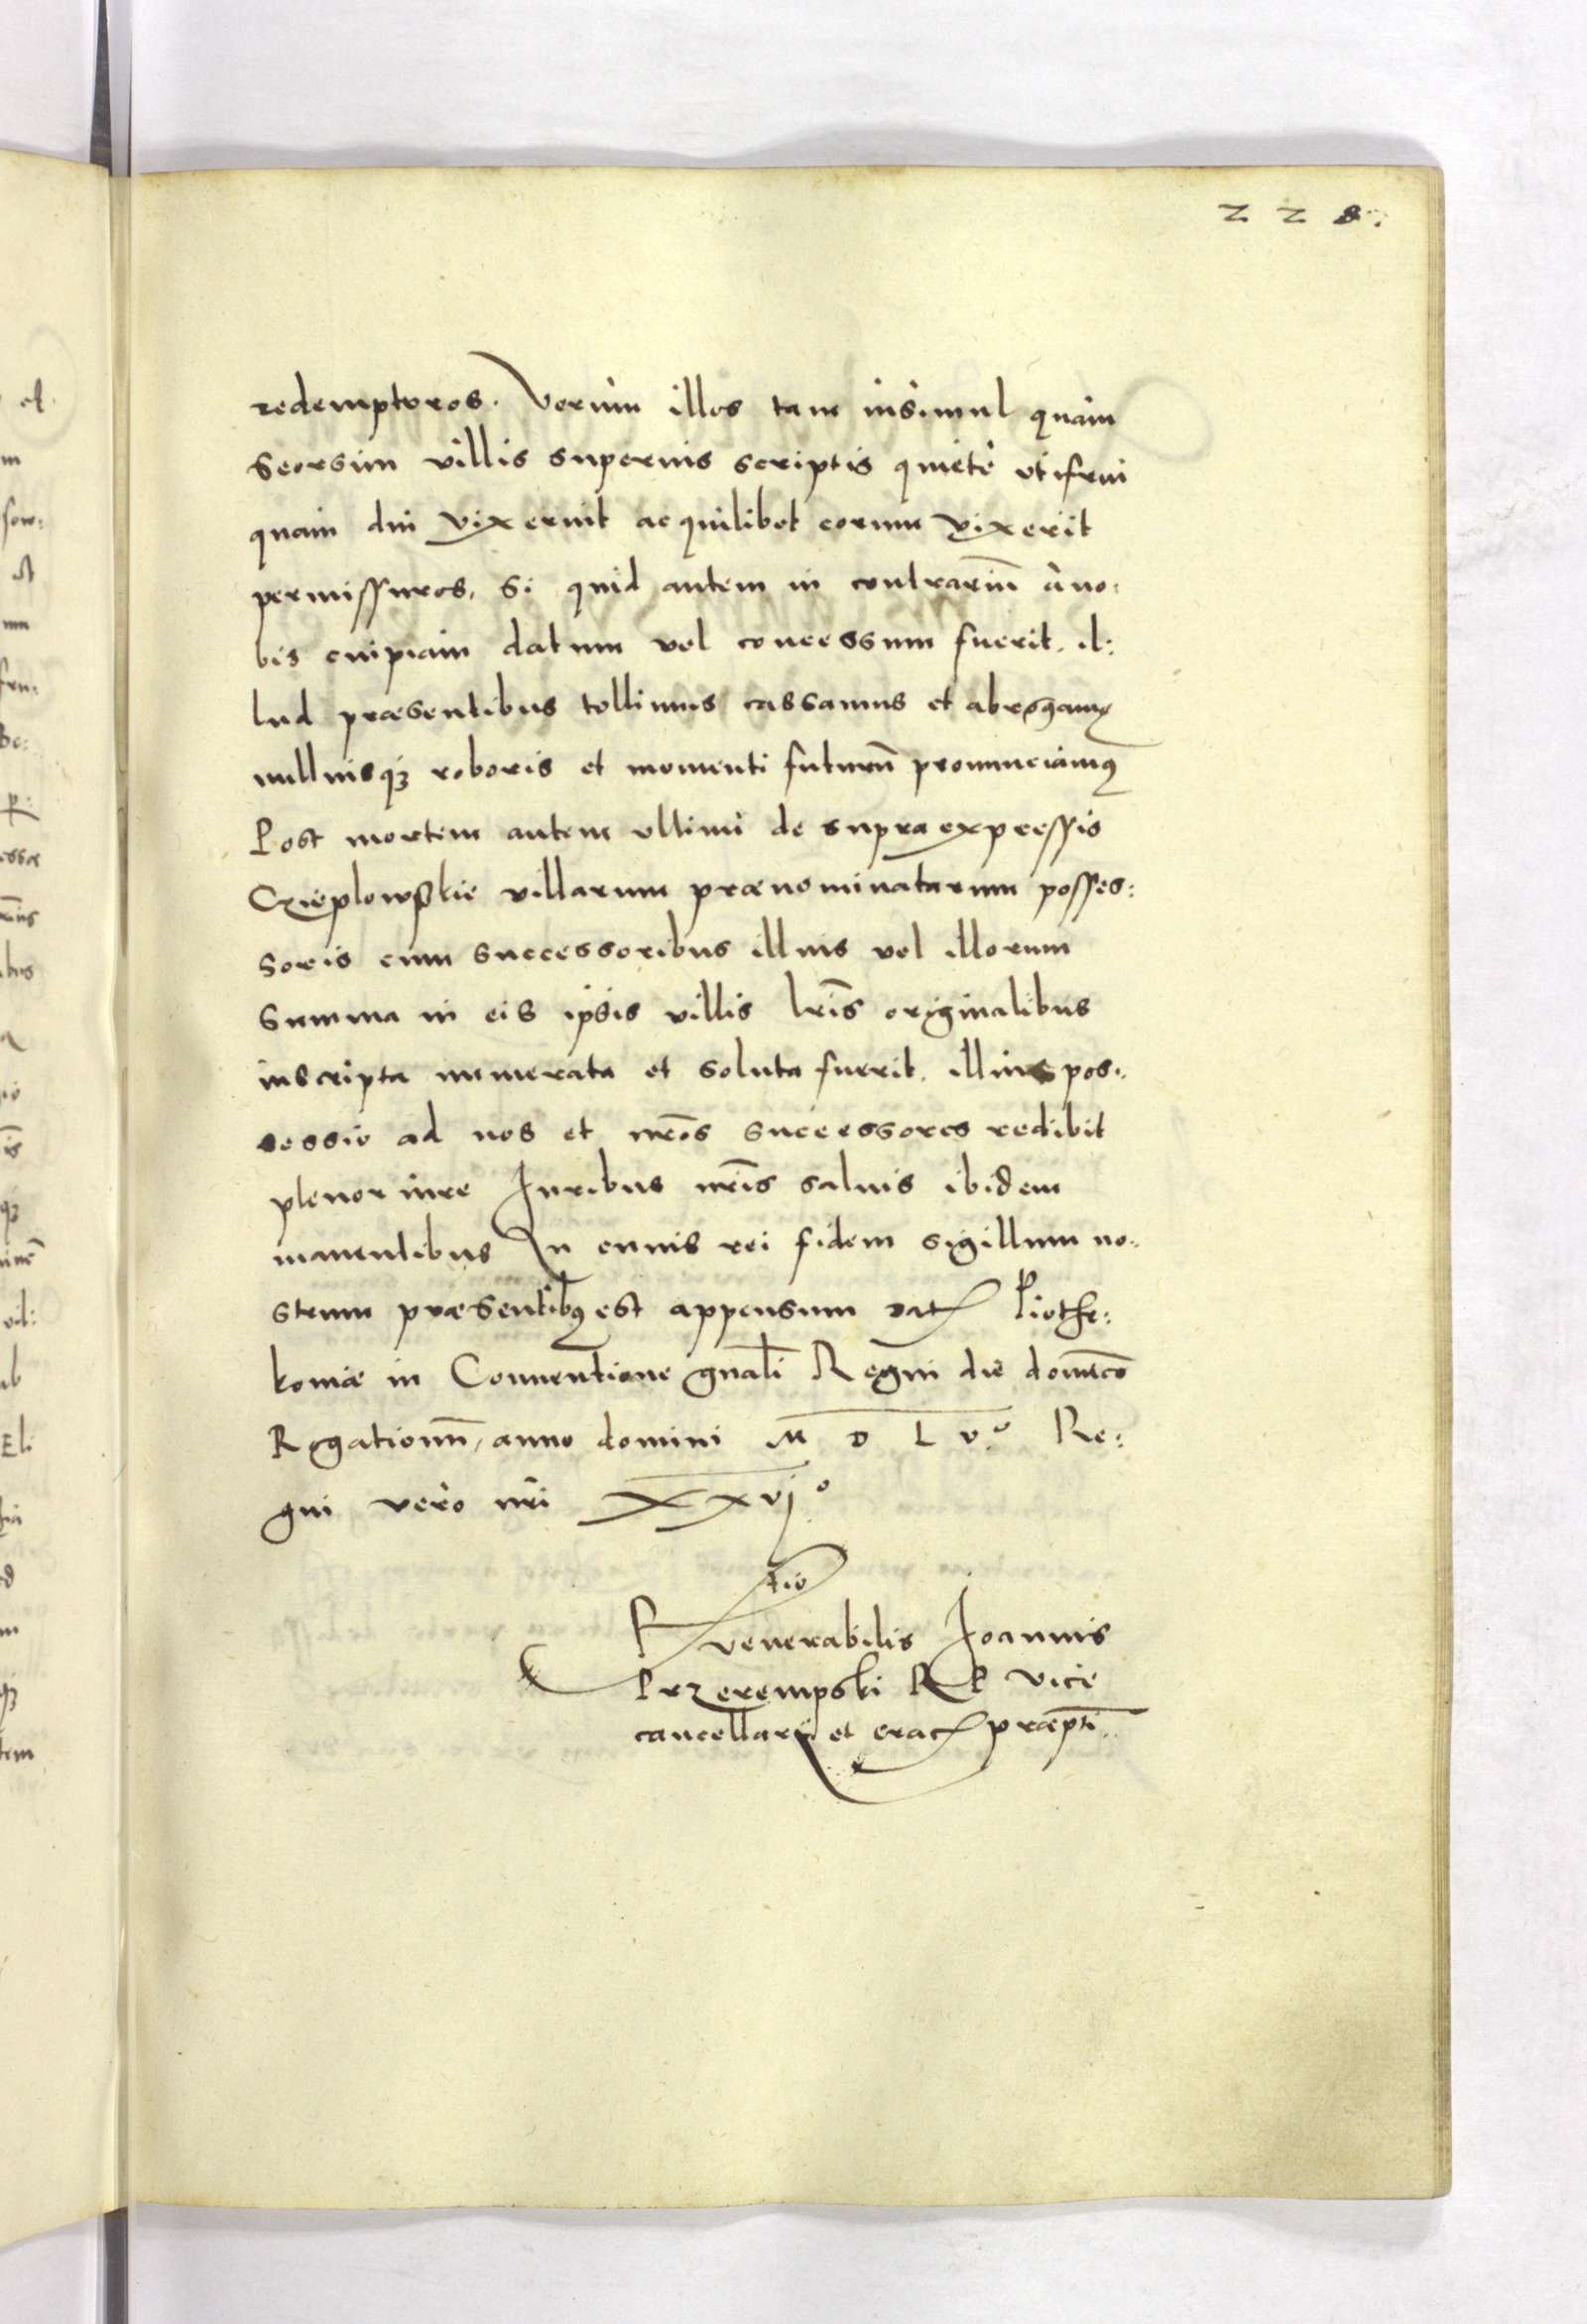 228.
redempturos. Verum illos tam insimul quam
seorsim villis superius scriptis quiete utifrui
quam diu vixerint ac quilibet eorum vixerit
permissuros, si quid autem in contrariũ à no:
bis cuipiam datum vel concessum fuerit. il:
lud præsentibus tollimus cassamus et abrogamꝰ
nulliusqꝫ roboris et momenti futurũ pronunciamꝰ
Post mortem autem ultimi de supra expressis
Czieplowskie villarum prænominatarum posses:
soris cum successoribus illius vel illorum
summa in eis ipsis villis lrĩs originalibus
inscripta numerata et soluta fuerit. illius pos:
sessio ad nos et nrõs successores redibit
pleno iure Iuribus nrĩs salvis ibidem
manentibus In cuius rei fidem sigillum no:
strum præsentibꝰ est appensum Dat Piothr:
koviæ in Conventione gnali Regni die dominico
Rogationũ, anno domini M D L vº Re:
gni vero nri XXvjº
Rtio venerabilis Joannis
Przerempski R P Vice
cancellarij et crac præpti.